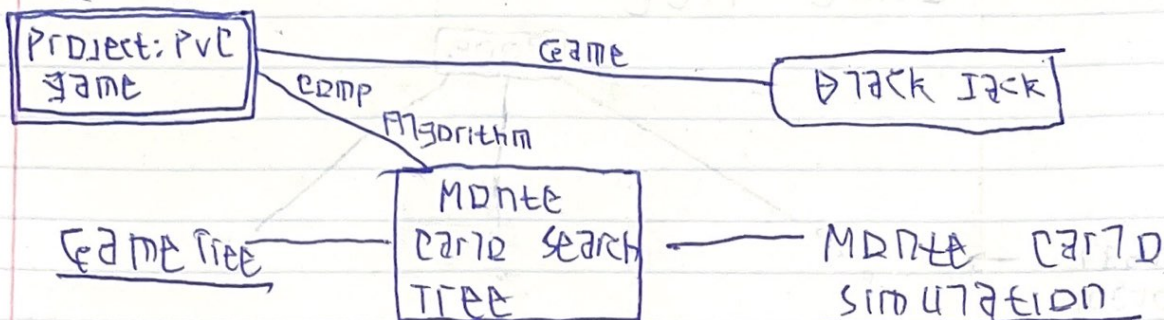 Project: PvC
game
Game
Black Jack
Comp
Algorithm
Monte
Carlo Search
Tree
Game Tree
Monte Carlo
Simulation